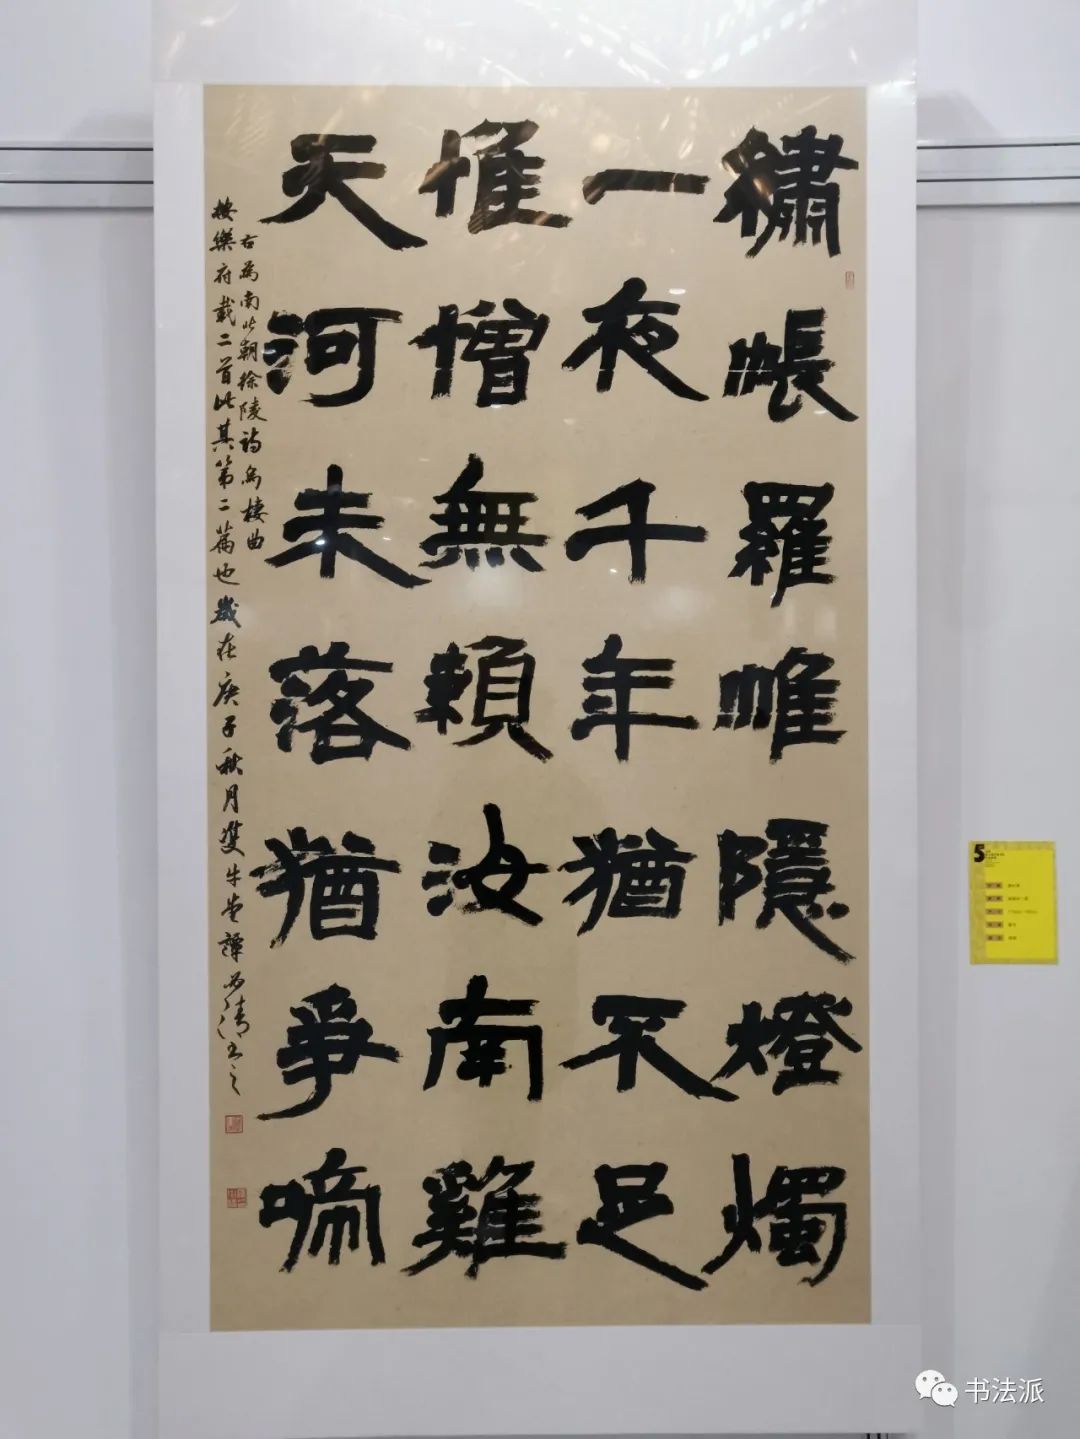 繡帳羅帷隱燈燭
一夜千年猶不足
惟憎無賴汝南雞
天河未落猶爭啼
右為南北朝徐陵詩烏棲曲
按樂府載二首此其第二篇也歲在庚子秋月雙牛堂譚西清書之
5
书法派